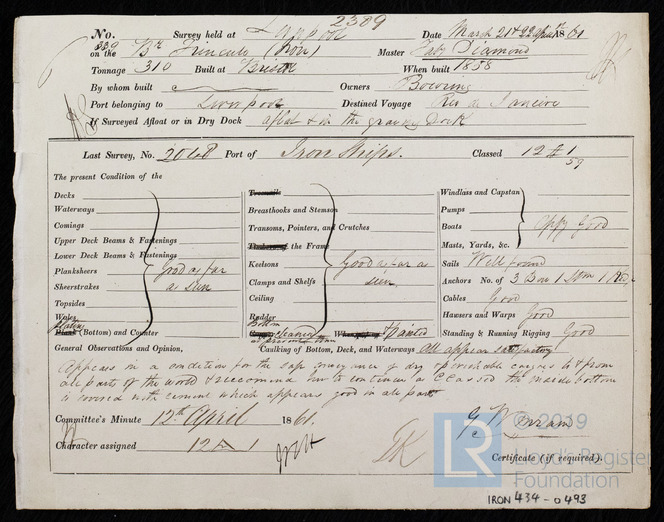 2309
No. 339 Survey held at Liverpool Date March 21 & 22 April 1861
on the Br Trinculo (Iron) Master Diamond
Tonnage 310 Built at Bristol When built 1858
By whom built Owners Bowring
Port belonging to Liverpool Destined Voyage Rio de Janeiro
If Surveyed Afloat or in Dry Dock afloat & in the graving Dock
Last Survey, No. Port of Iron Ships. Classed 12 A 1
59
The present Condition of the
Decks
Waterways
Comings
Upper Deck Beams & Fastenings
Lower Deck Beams & Fastenings
Planksheers
Sheerstrakes
Topsides
Wales
Good as far
as seen
Plating
Plank (Bottom) and Counter
Treenails
Breasthooks and Stemson
Transoms, Pointers, and Crutches
Timbering the Frame
Keelsons
Clamps and Shelfs
Ceiling
Rudder
Good as far as
seen
Bottom
cleaned painted
Windlass and Capstan
Pumps
Boats
Masts, Yards, &c.
Appy Good
Sails Well found
Anchors No. of 3 Bow 1 Stm 1 Ked.
Cables Good
Hawsers and Warps Good
Standing & Running Rigging Good
General Observations and Opinion, Caulking of Bottom, Deck, and Waterways All appear satisfactory
Appears in a condition for the safe conveyance of dry & perishable cargoes to & from
all parts of the world & recommend her to continue as Classed the inside bottom
is covered with cement which appears good in all parts
Committee's Minute 12th April 1861.
Character assigned 12 A 1
Certificate (if required).
© 2019
LR
Lloyd's Register
Foundation
IRON 434-0493